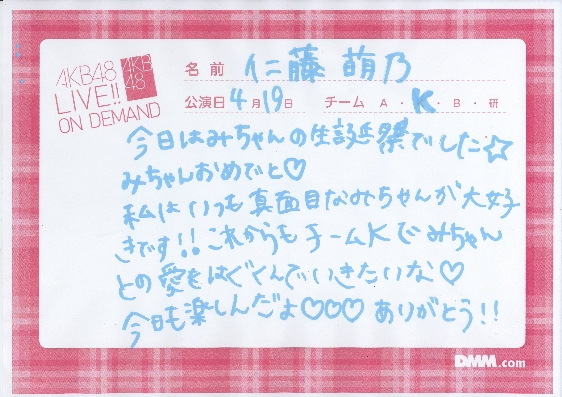 AKB48
LIVE!!
ON DEMAND
AKB
48
名前 仁藤萌乃
公演日 4月19日 チーム A・K・B・研
今日はみちゃんの生誕祭でした☆
みちゃんおめでと♡
私はいつも真面目なみちゃんが大好
きです!!これからもチームKでみちゃん
との愛をはぐくんでいきたいな♡
今日も楽しんだよ♡♡♡ ありがとう!!
DMM.com